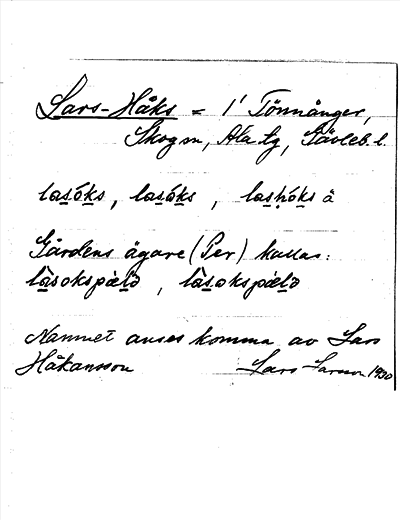 Lars-Håks = i Tönnånger,
Skog sn, Ala tg, Gävleb. l.
lasóks, lasóks, lashóks ä
Gårdens ägare (Per) kallas:
làsokspæ̀lə, làsokspæ̀lə
Namnet anses komma av Lars
Håkansson Lars Larsson 1930